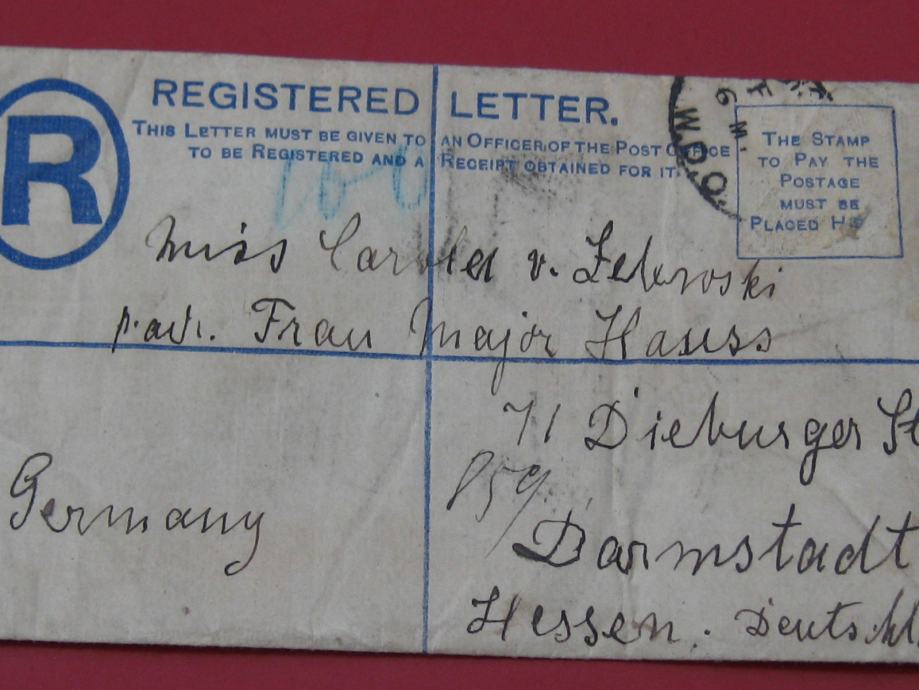 R
REGISTERED LETTER.
THIS LETTER MUST BE GIVEN TO AN OFFICER OF THE POST OFFICE
TO BE REGISTERED AND A RECEIPT OBTAINED FOR IT.
THE STAMP
TO PAY THE
POSTAGE
MUST BE
PLACED HERE
Miss Carola v. Zebrowski
p. adr. Frau Major Hauss
71 Dieburger St
859
Germany
Darmstadt
Hessen. Deutschl.